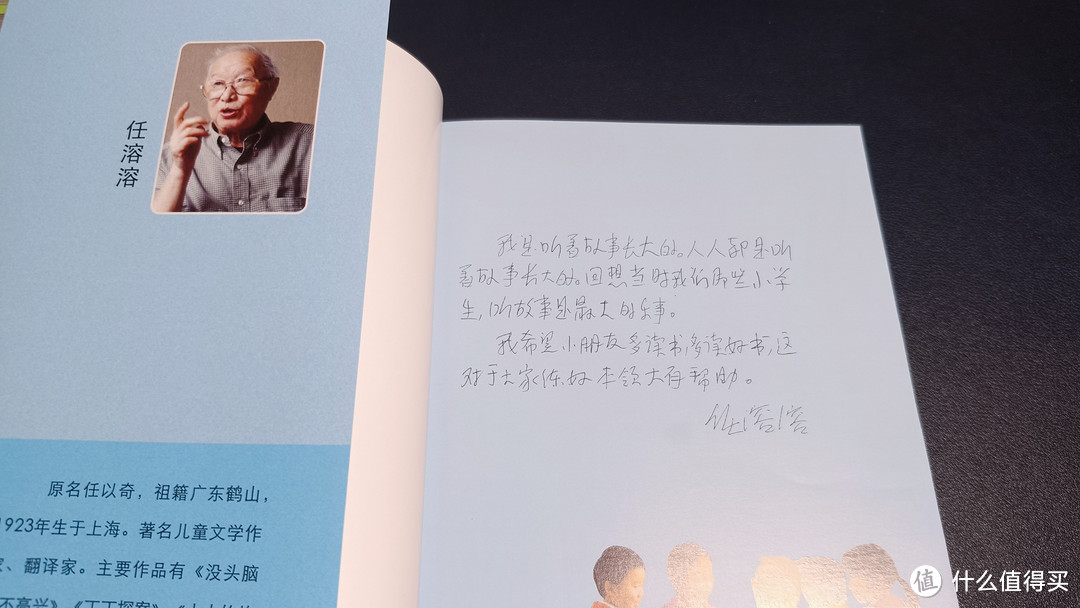 任溶溶
原名任以奇，祖籍广东鹤山，
1923年生于上海。著名儿童文学作
家、翻译家。主要作品有《没头脑
不高兴》《丁丁探案》《
我是听着故事长大的。人人都是听
着故事长大的。回想当时我们那些小学
生，听故事是最大的乐事。
我希望小朋友多读书，多读好书，这
对于大家练好本领大有帮助。
任溶溶
值 什么值得买